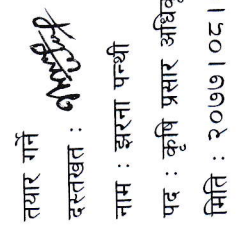 तयार गर्ने
दस्तखत :
नाम : झरना पन्थी
पद : कृषि प्रसार
मिति : २०७७।०८।